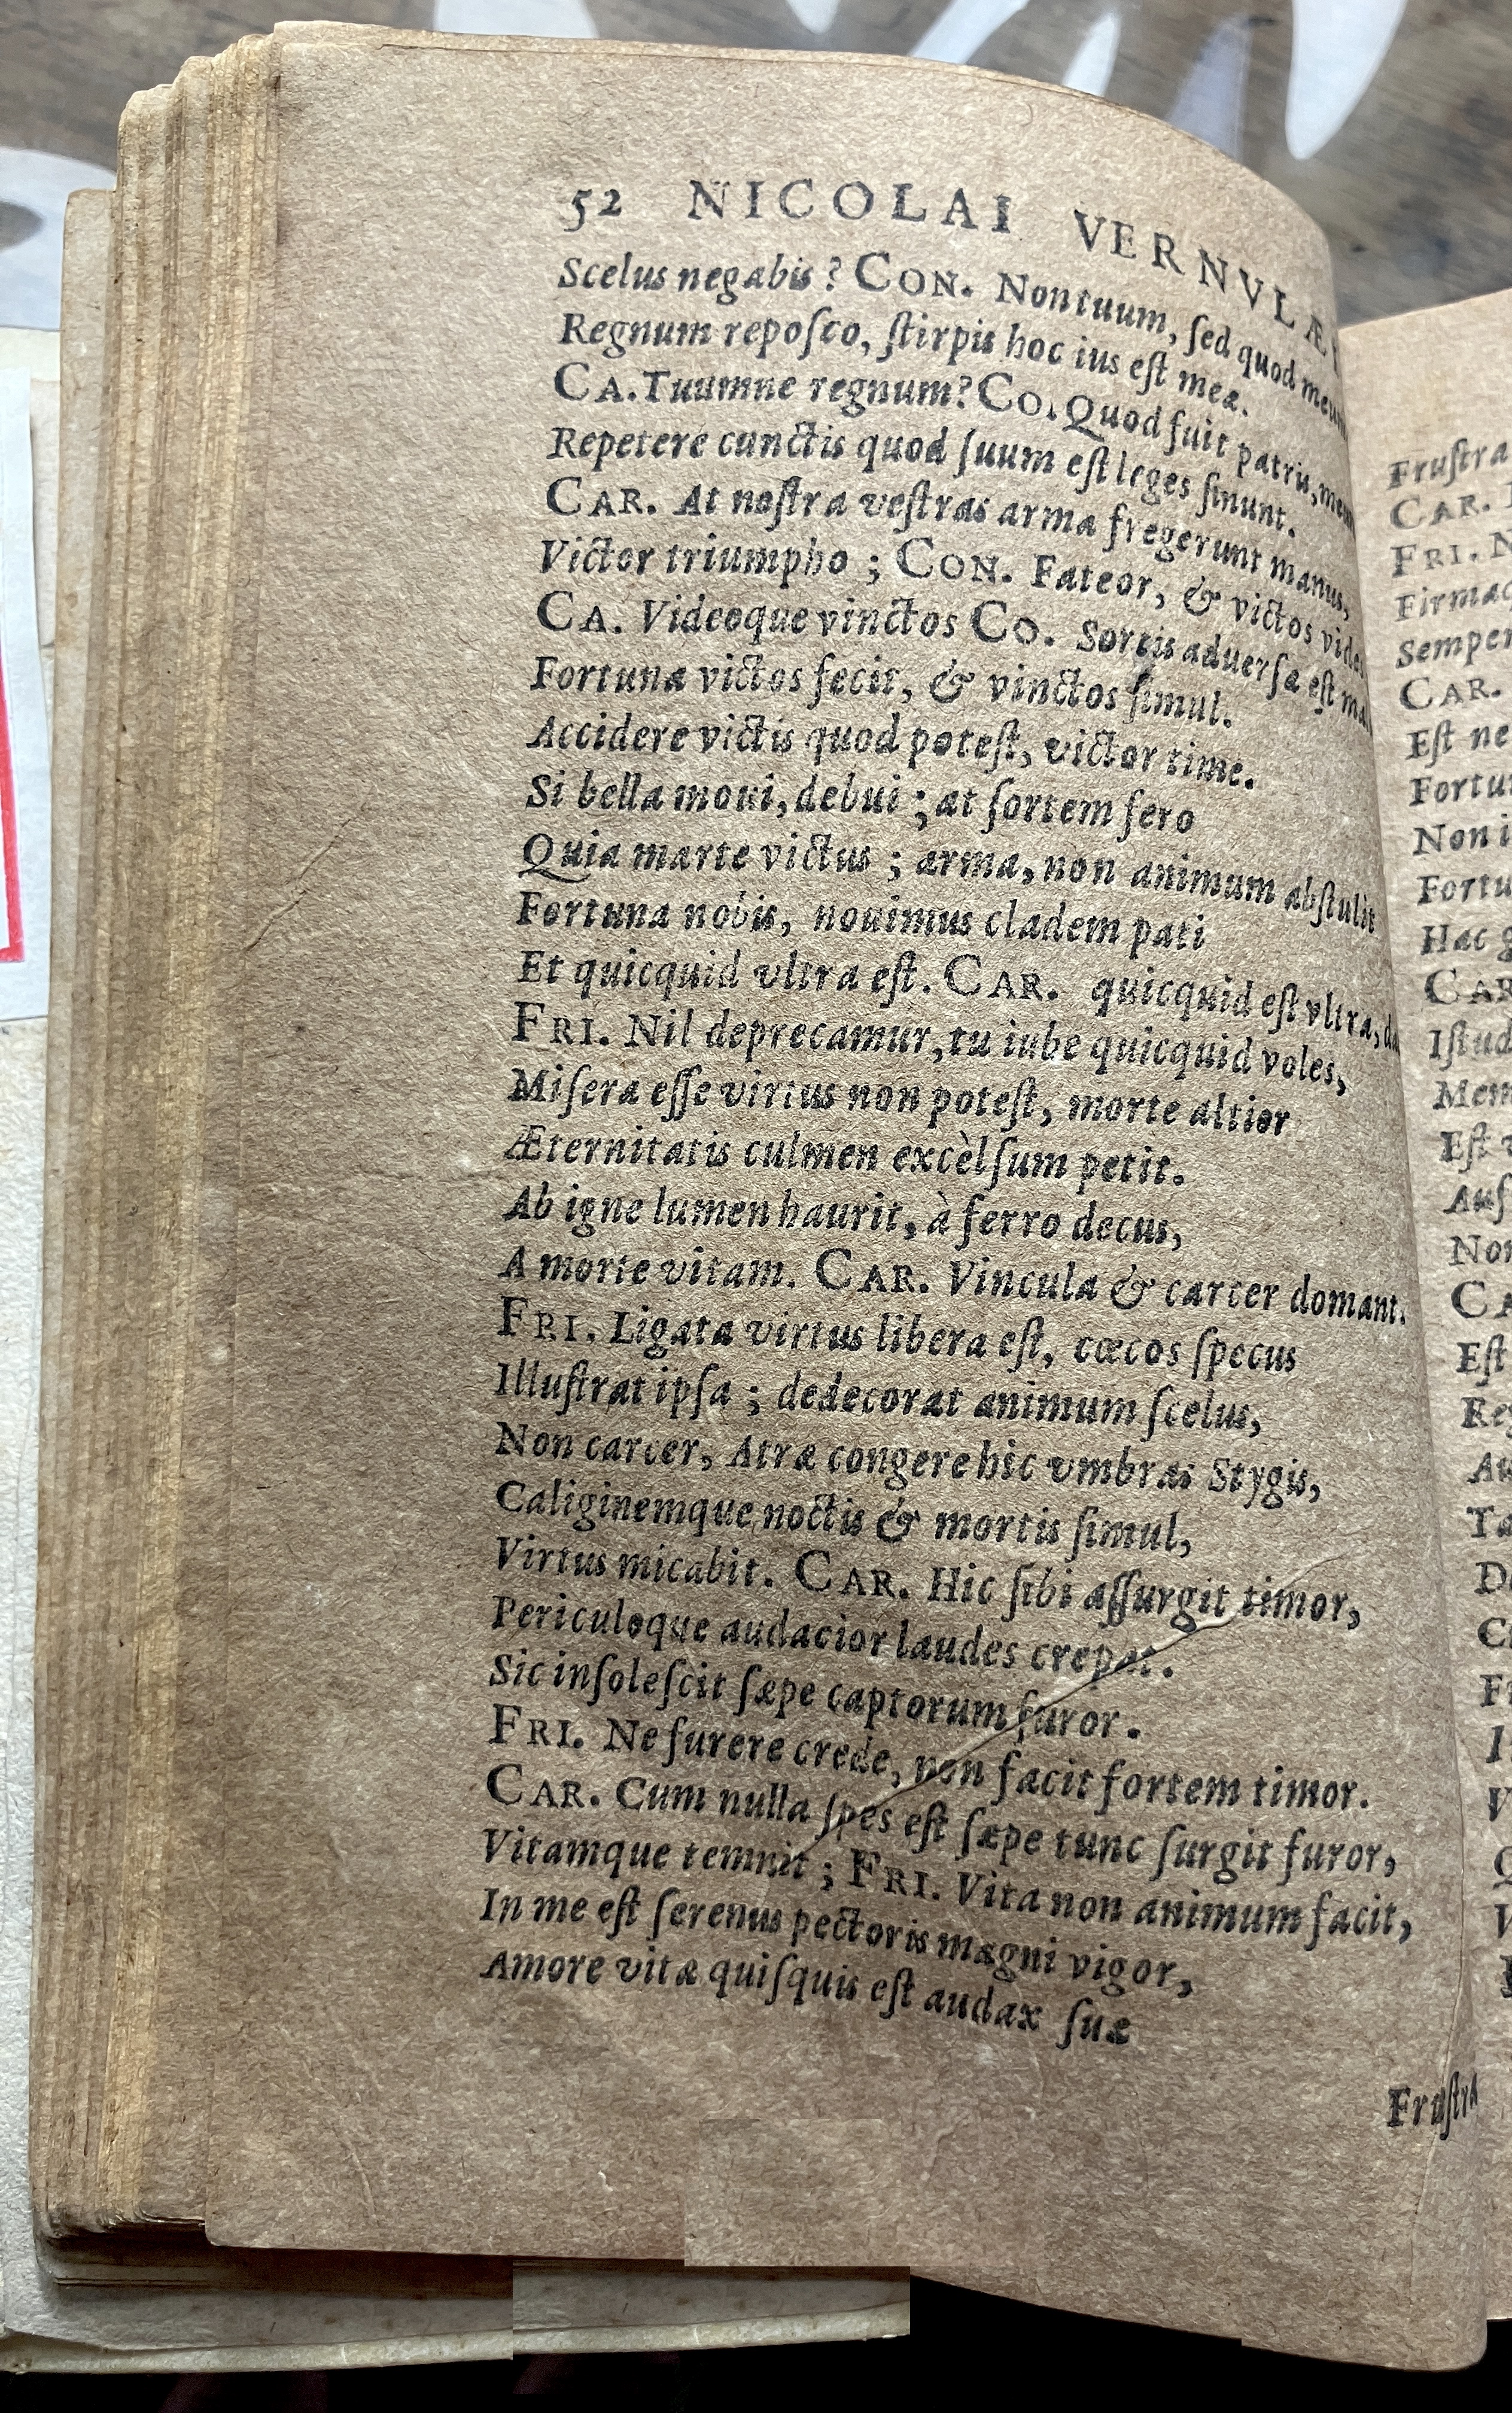 52 NICOLAI VERNVLÆI
Scelus negabis? CON. Non tuum, ſed quod meum
Regnum repoſco, ſtirpis hoc ius eſt meæ.
CA. Tuumne regnum? CO. Quod fuit patriu, meum
Repetere cunctis quod ſuum eſt leges ſinunt.
CAR. At noſtra veſtras arma fregerunt manus,
Victor triumpho ; CON. Fateor, & victos vides
CA. Videoque vinctos CO. Sortis aduerſa eſt
Fortuna victos fecit, & vinctos ſimul.
Accidere victis quod poteſt, victor time.
Si bella moui, debui ; at ſortem fero
Quia marte victus ; arma, non animum abſtulit
Fortuna nobis, nouimus cladem pati
Et quicquid vltra eſt. CAR. quicquid eſt vltra,
FRI. Nil deprecamur, tu iube quicquid voles,
Miſera eſſe virtus non poteſt, morte altior
Æternitatis culmen excèlſum petit.
Ab igne lumen haurit, à ferro decus,
A morte vitam. CAR. Vincula & carcer domant.
FRI. Ligata virtus libera eſt, cœcos ſpecus
Illuſtrat ipſa ; dedecorat animum ſcelus,
Non carcer, Atræ congere hic vmbras Stygis,
Caliginemque noctis & mortis ſimul,
Virtus micabit. CAR. Hic ſibi aſſurgit timor,
Periculoque audacior laudes crepat.
Sic inſoleſcit ſæpe captorum furor.
FRI. Ne furere crede, non facit fortem timor.
CAR. Cum nulla ſpes eſt ſæpe tunc ſurgit furor,
Vitamque temnit ; FRI. Vita non animum facit,
In me eſt ſerenus pectoris magni vigor,
Amore vitæ quiſquis eſt audax ſuæ
Fruſtra
Fruſtra
CAR.
FRI.
Semper
CAR.
Eſt ne
Non i
Hac
CAR
Eſt